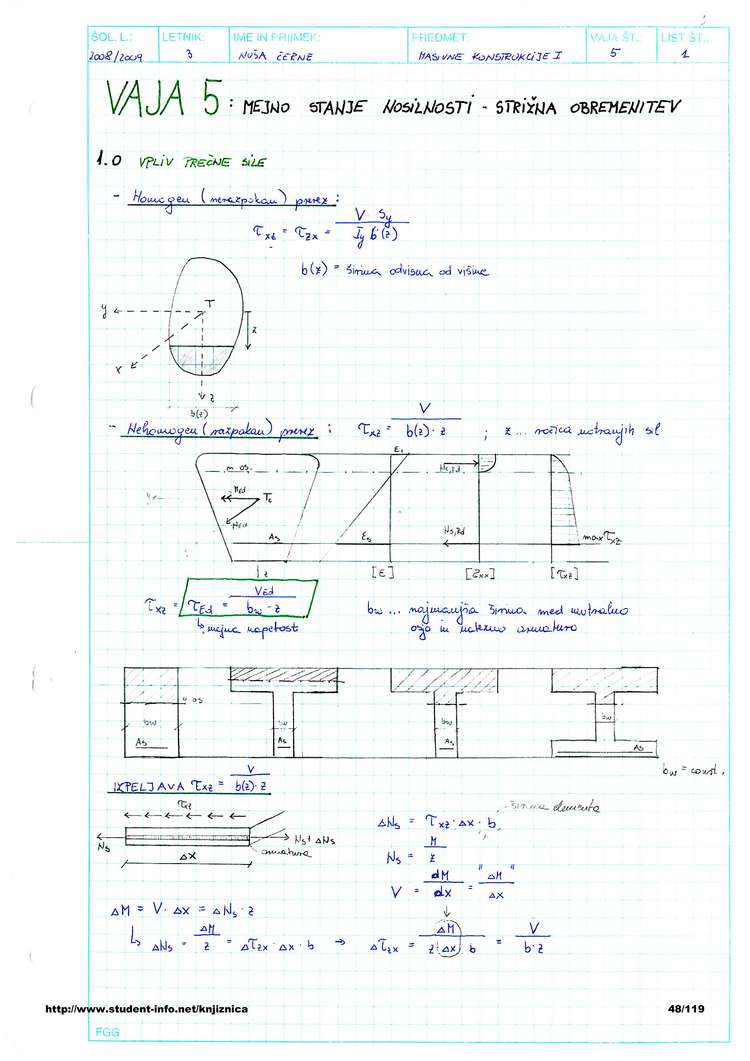 ŠOL. L.: LETNIK: IME IN PRIIMEK: PREDMET: VAJA ŠT.: LIST ŠT.:
2008/2009 3 NUŠA ČERNE MASIVNE KONSTRUKCIJE I 5 1
VAJA 5: MEJNO STANJE NOSILNOSTI - STRIŽNA OBREMENITEV
1.0 VPLIV PREČNE SILE
- Homogen (nerazpokan) prerez:
τxz = τzx = V Sy / Iy b(z)
b(z) = širina odvisna od višine
y T z
x
z
b(z)
- Nehomogen (razpokan) prerez: τxz = V / b(z)·z ; z ... ročica notranjih sil
n. os. MEd Tc NEd As
Es Nc,Rd Ns,Rd max τxz
z [ε] [σxx] [τxz]
τxz = τEd = VEd / bw·z
bw ... najmanjša širina med nevtralno
osjo in natezno armaturo
↳ mejna napetost
n. os
bw bw bw bw
As As As As
bw = const.
IZPELJAVA τxz = V / b(z)·z
τxz
Ns Ns + ΔNs
armatura
Δx
širina elementa
ΔNs = τxz·Δx·b
Ns = M / z
V = dM / dx = "ΔM" / Δx
ΔM = V·Δx = ΔNs·z
↳ ΔNs = ΔM / z = Δτzx·Δx·b → Δτzx = ΔM / z·Δx·b = V / b·z
http://www.student-info.net/knjiznica 48/119
FGG